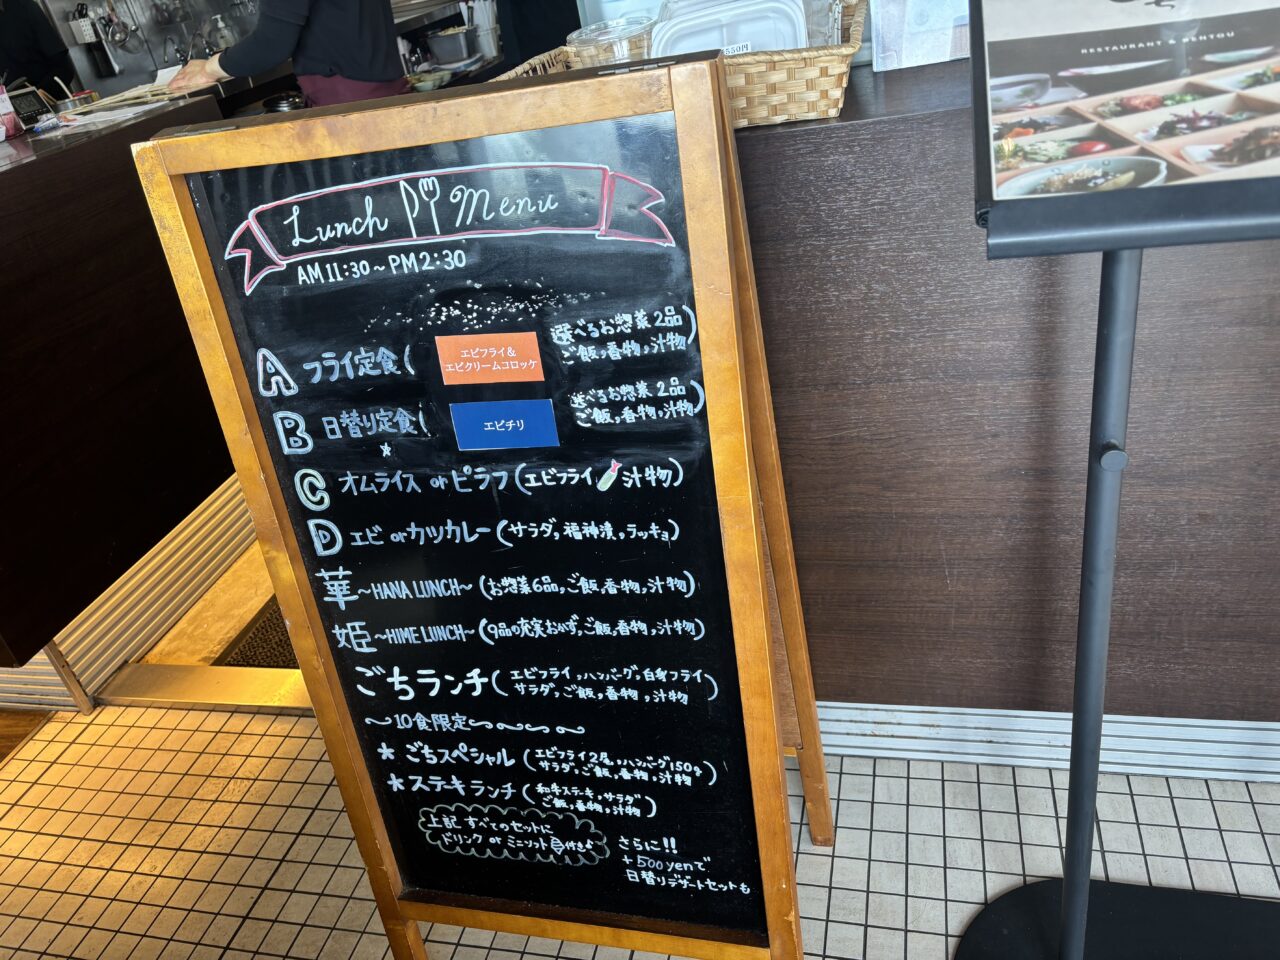 550円
RESTAURANT & BENTOU
Lunch Menu
AM 11:30~PM 2:30
A フライ定食(
エビフライ&
エビクリームコロッケ
選べるお惣菜2品
ご飯,香物,汁物)
B 日替り定食(
エビチリ
選べるお惣菜2品
ご飯,香物,汁物)
C オムライス or ピラフ(エビフライ 汁物)
D エビ or カツカレー(サラダ,福神漬,ラッキョ)
華~HANA LUNCH~(お惣菜6品,ご飯,香物,汁物)
姫~HIME LUNCH~(9品の充実おかず,ご飯,香物,汁物)
ごちランチ(エビフライ,ハンバーグ,白身フライ
サラダ,ご飯,香物,汁物)
~10食限定~
*ごちスペシャル(エビフライ2尾,ハンバーグ150g
サラダ,ご飯,香物,汁物)
*ステーキランチ(和牛ステーキ,サラダ
ご飯,香物,汁物)
上記 すべてのセットに
ドリンク or ミニソフト付き♪
さらに!!
+500yenで
日替りデザートセットも